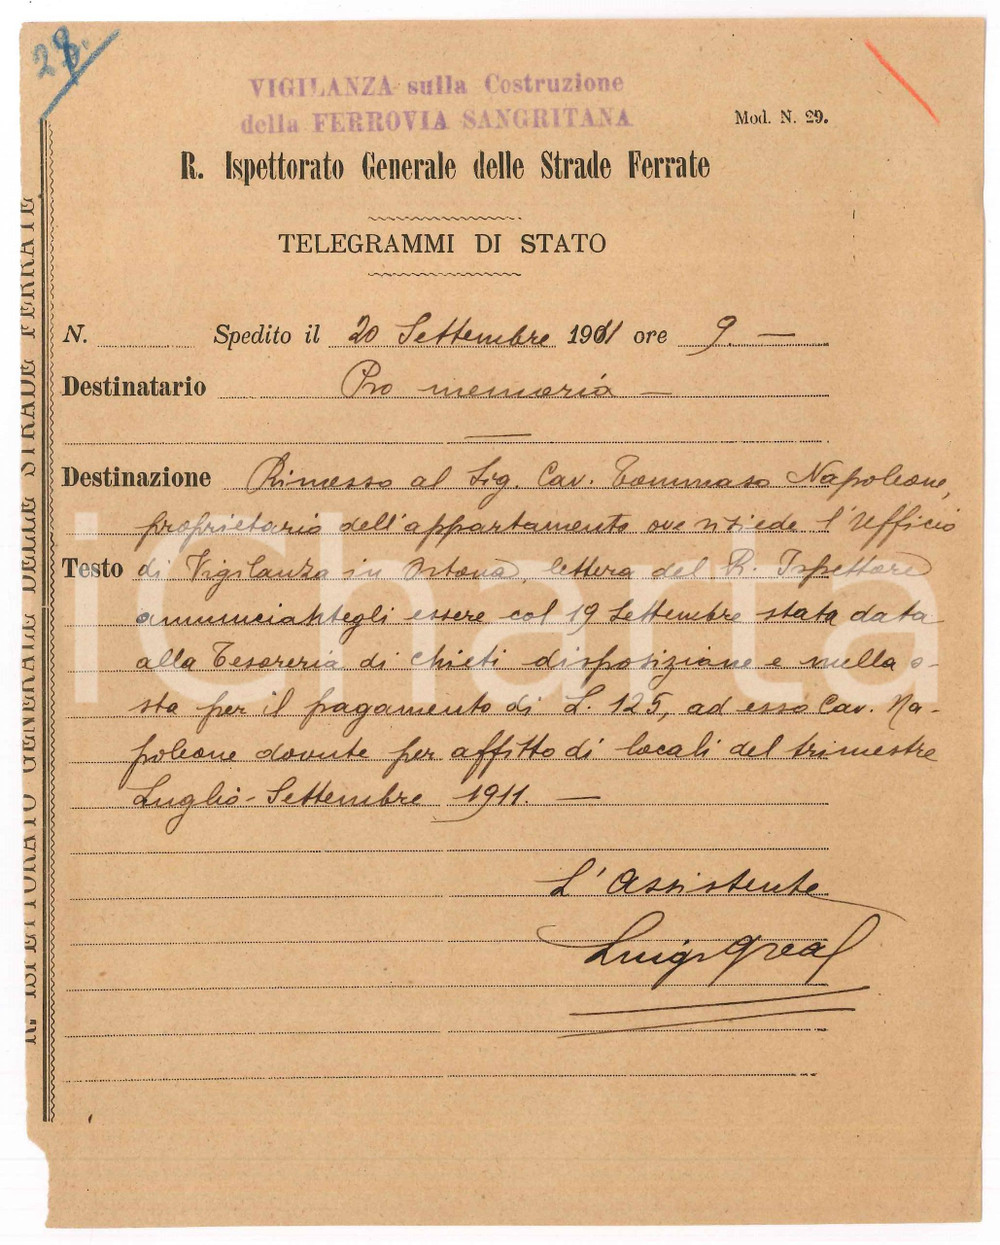 28.
VIGILANZA sulla Costruzione
della FERROVIA SANGRITANA
Mod. N. 29.
R. Ispettorato Generale delle Strade Ferrate
TELEGRAMMI DI STATO
N. Spedito il 20 Settembre 1911 ore 9. —
Destinatario Pro memoria —
Destinazione Rimesso al Sig. Cav. Tommaso Napoleone,
proprietario dell'appartamento ove risiede l'Ufficio
Testo di Vigilanza in Ortona, lettera del R. Ispettore
annunciantegli essere col 19 Settembre stata data
alla Tesoreria di Chieti disposizione e nulla o-
sta per il pagamento di L. 125, ad esso Cav. Na-
poleone dovute per affitto di locali del trimestre
Luglio-Settembre 1911. —
L'Assistente
Luigi
R. ISPETTORATO GENERALE DELLE STRADE FERRATE
iCharta